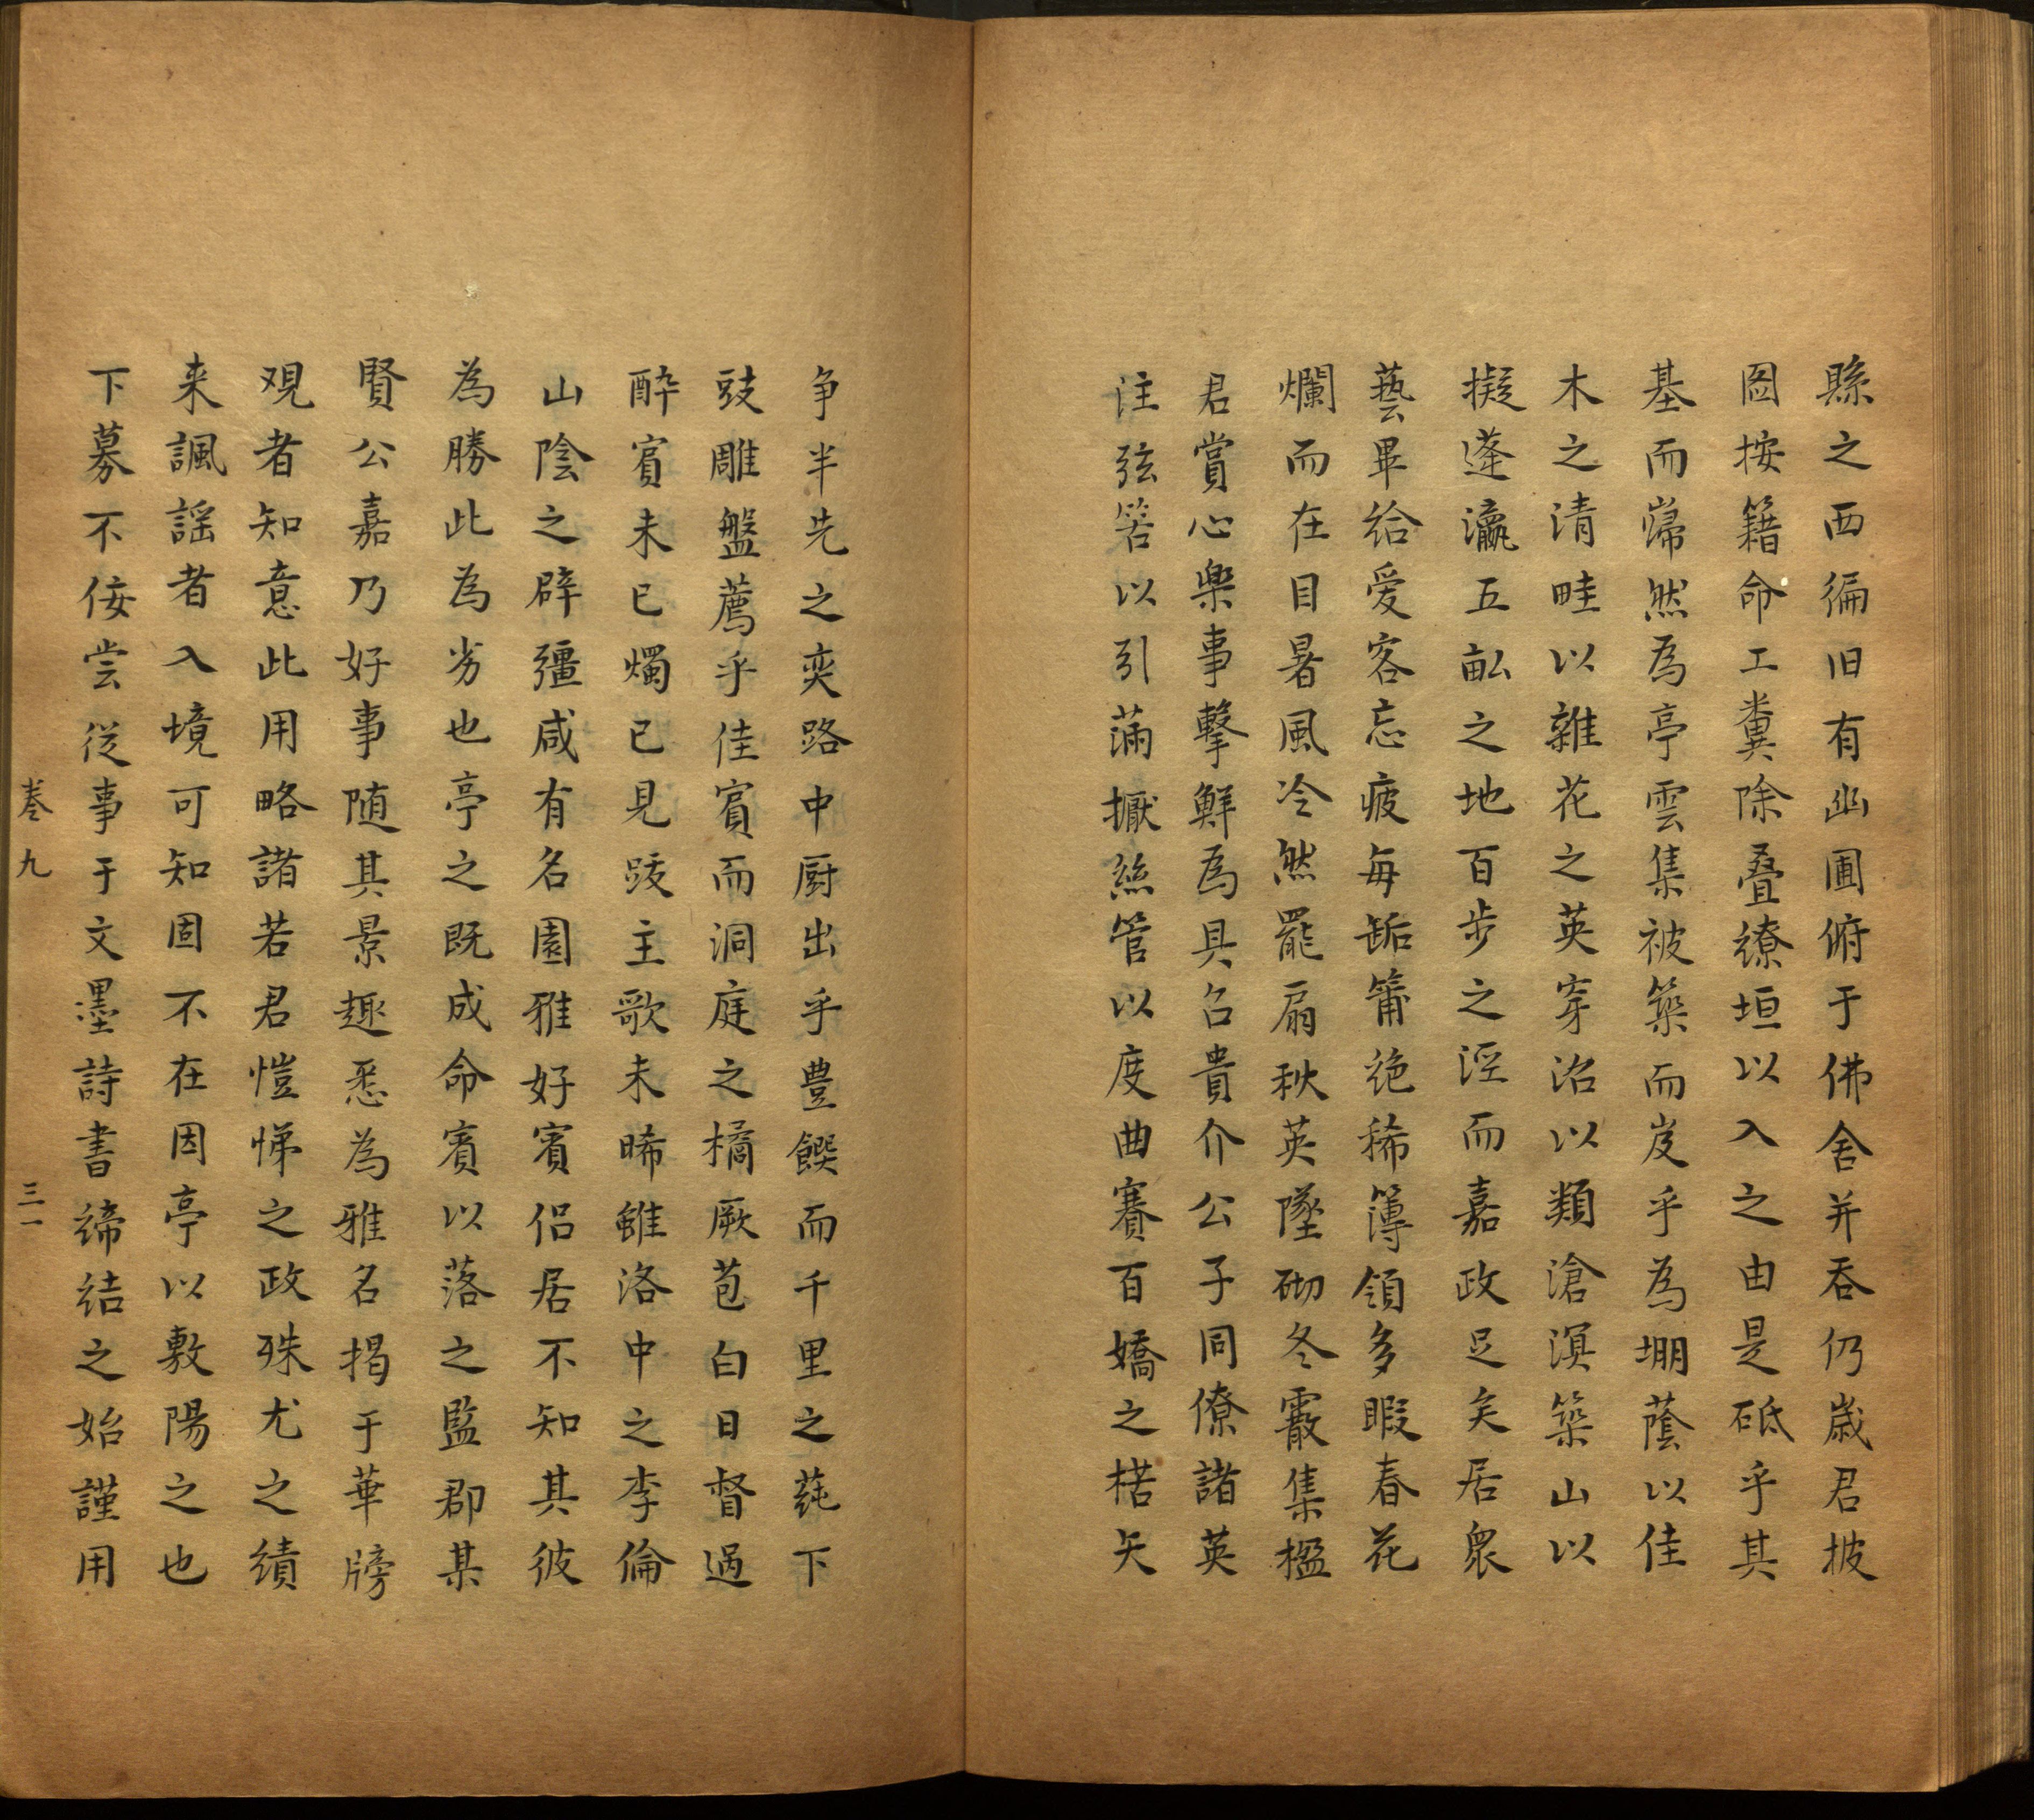 縣之西徧旧有幽圃俯于佛舍并吞仍歲君披
圖按籍命工糞除叠繚垣以入之由是砥乎其
基而巋然為亭雲集被築而岌乎為堋蔭以佳
木之清畦以雜花之英穿沼以類滄溟築山以
擬蓬瀛五畝之地百步之涇而嘉政足矣居衆
藝畢給爱客忘疲每缿筩绝稀簿領多暇春花
爛而在目暑風冷然罷扇秋英墜砌冬霰集楹
君賞心樂事擊鮮為具召貴介公子同僚諸英
注弦筈以引滿擫絲管以度曲賽百嬌之楛矢
争半先之奕路中厨出乎豊饌而千里之蒓下
豉雕盤薦乎佳賓而洞庭之橘厥苞白日督過
酔賓未已燭已見跋主歌未晞雖洛中之李倫
山陰之辟彊咸有名園雅好賓侶居不知其彼
為勝此為劣也亭之既成命賓以落之監郡某
賢公嘉乃好事随其景趣悉為雅名揭于華牓
观者知意此用略諸若君愷悌之政殊尤之績
来諷謡者入境可知固不在因亭以敷陽之也
下募不佞尝從事于文墨詩書締结之始謹用
卷九 三一